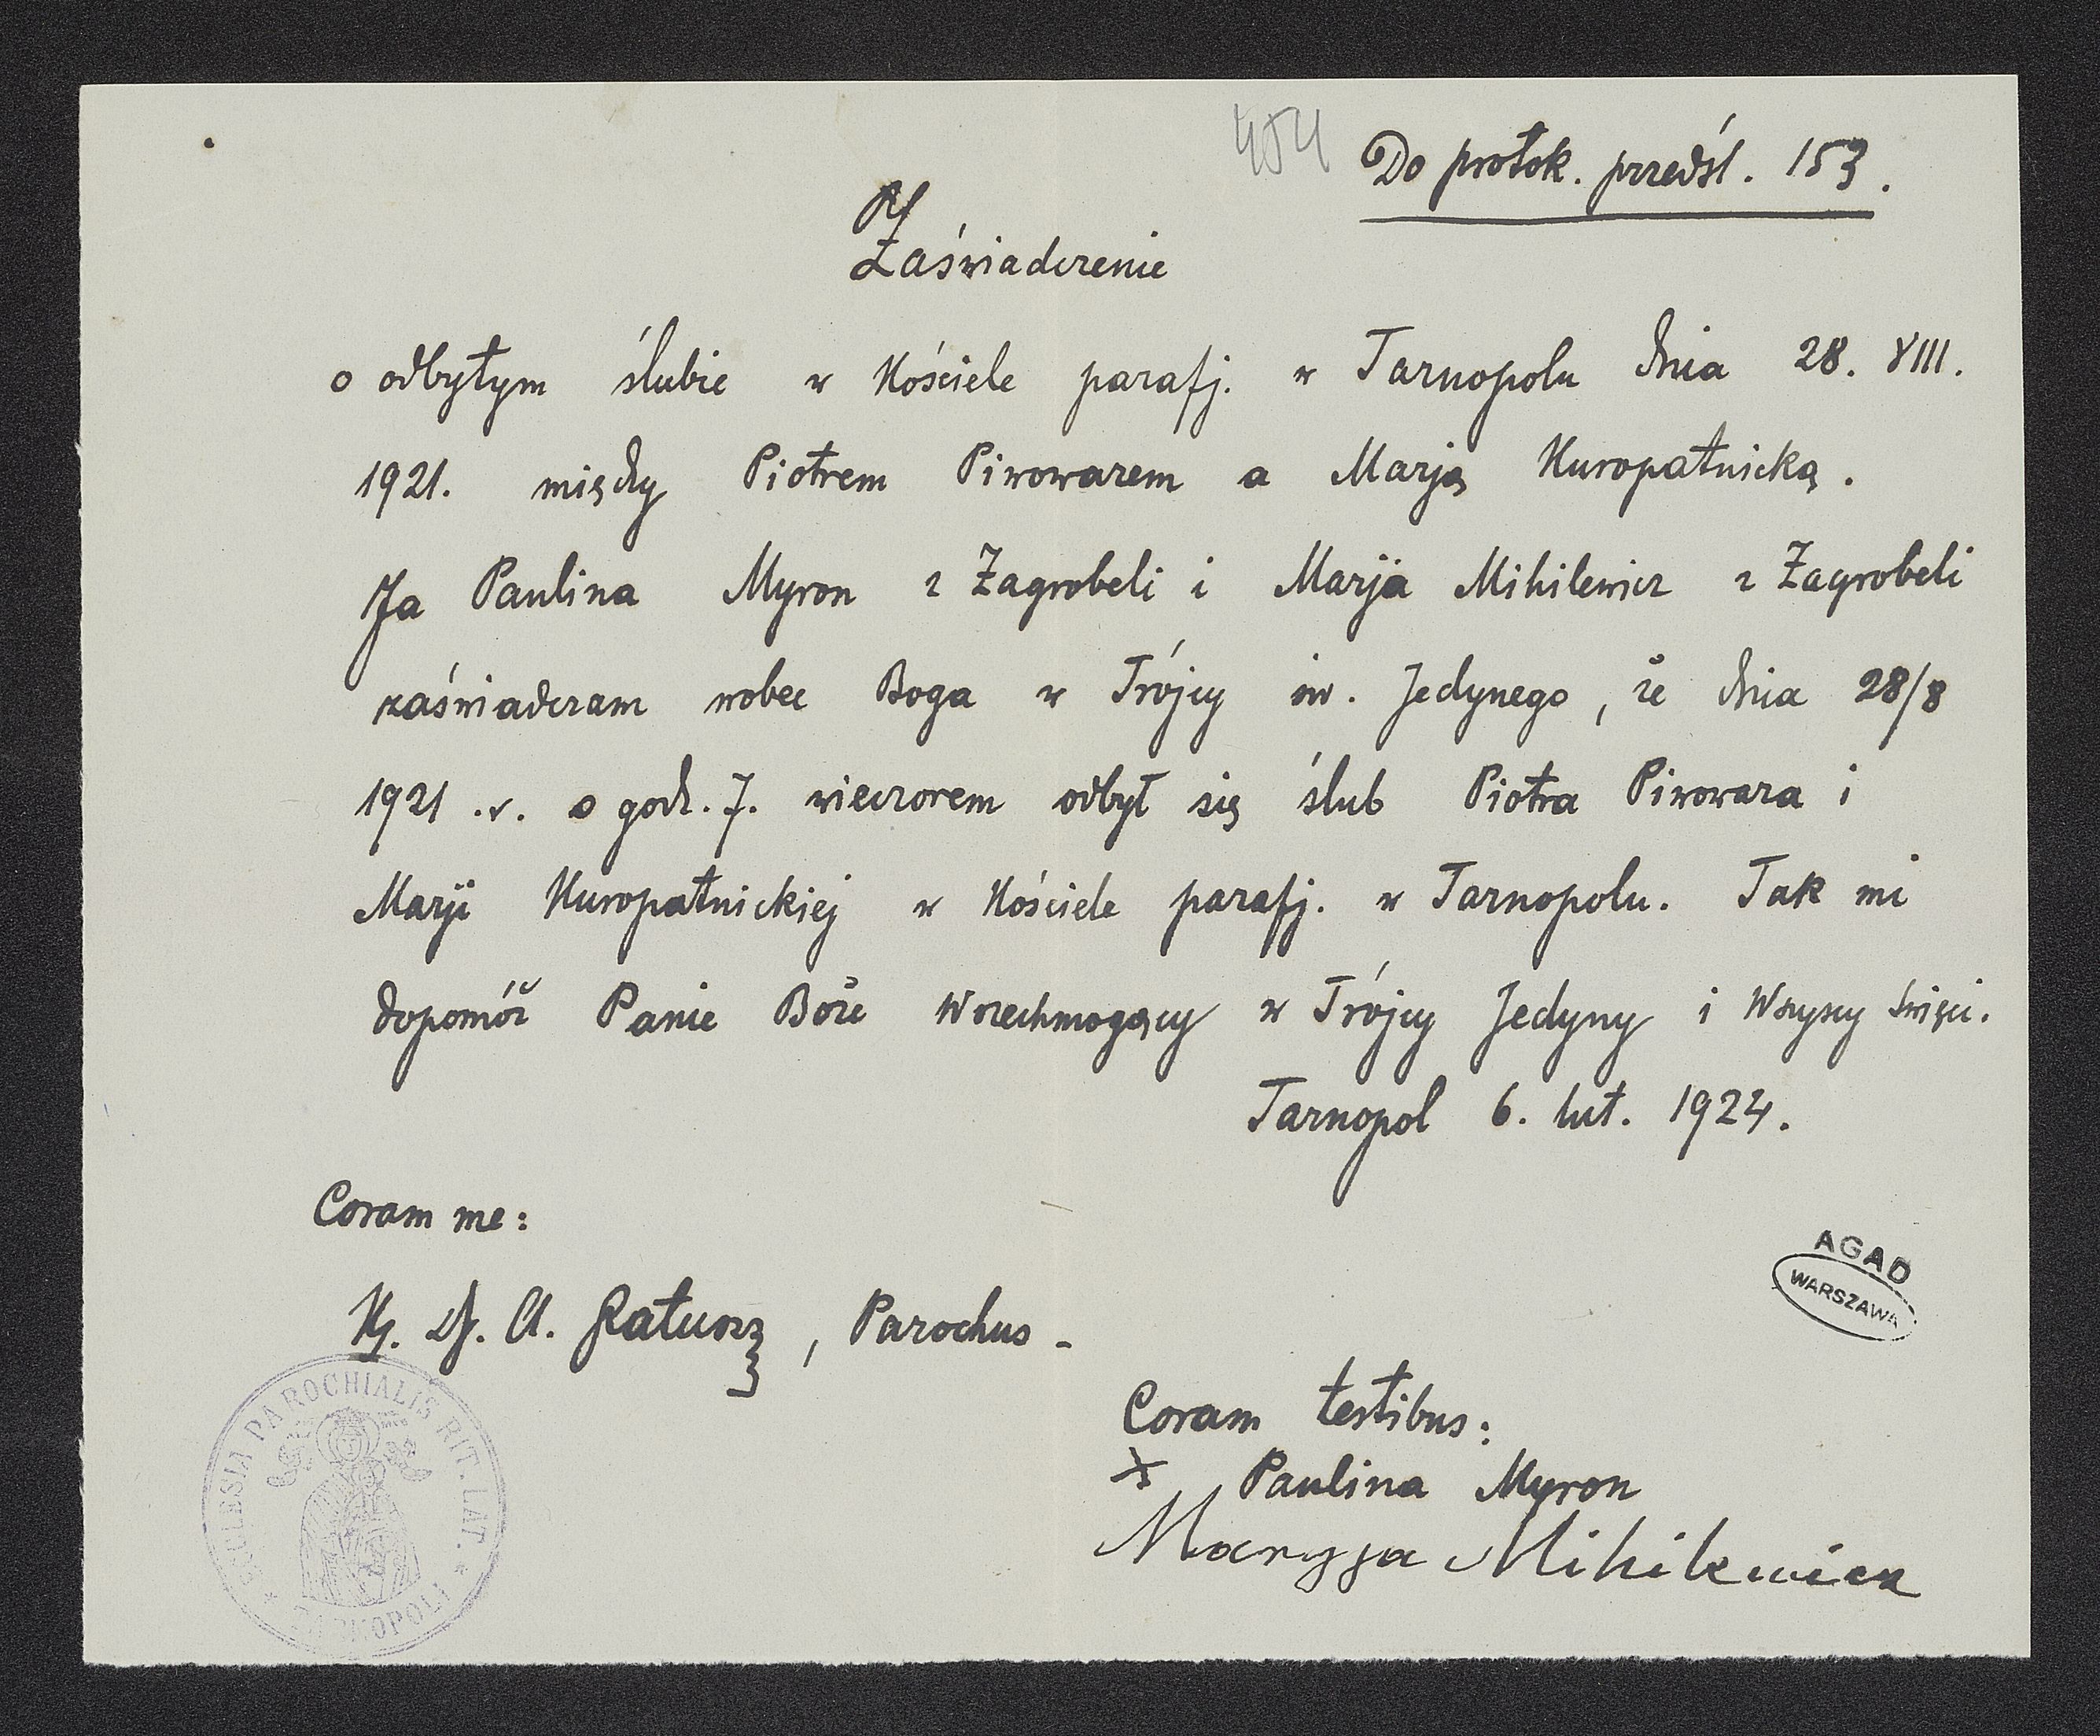 454
Do protok. przedśl. 153.
Zaświadczenie
o odbytym ślubie w Kościele parafj. w Tarnopolu dnia 28. VIII.
1921. między Piotrem Piwowarem a Marją Kuropatnicką.
Ja Paulina Myron z Zagrobeli i Marja Mihilewicz z Zagrobeli
zaświadczam wobec Boga w Trójcy św. Jedynego, że dnia 28/8
1921 .r. o godz. 7. wieczorem odbył się ślub Piotra Piwowara i
Marji Kuropatnickiej w Kościele parafj. w Tarnopolu. Tak mi
dopomóż Panie Boże Wszechmogący w Trójcy Jedyny i Wszyscy Święci.
Tarnopol 6. lut. 1924.
Coram me:
Ks. Dr. A. Ratusz, Parochus -
AGAD
WARSZAWA
Coram testibus:
x Paulina Myron
Maryja Mihilewicz
* ECCLESIA PAROCHIALIS RIT. LAT. *
TARNOPOLI